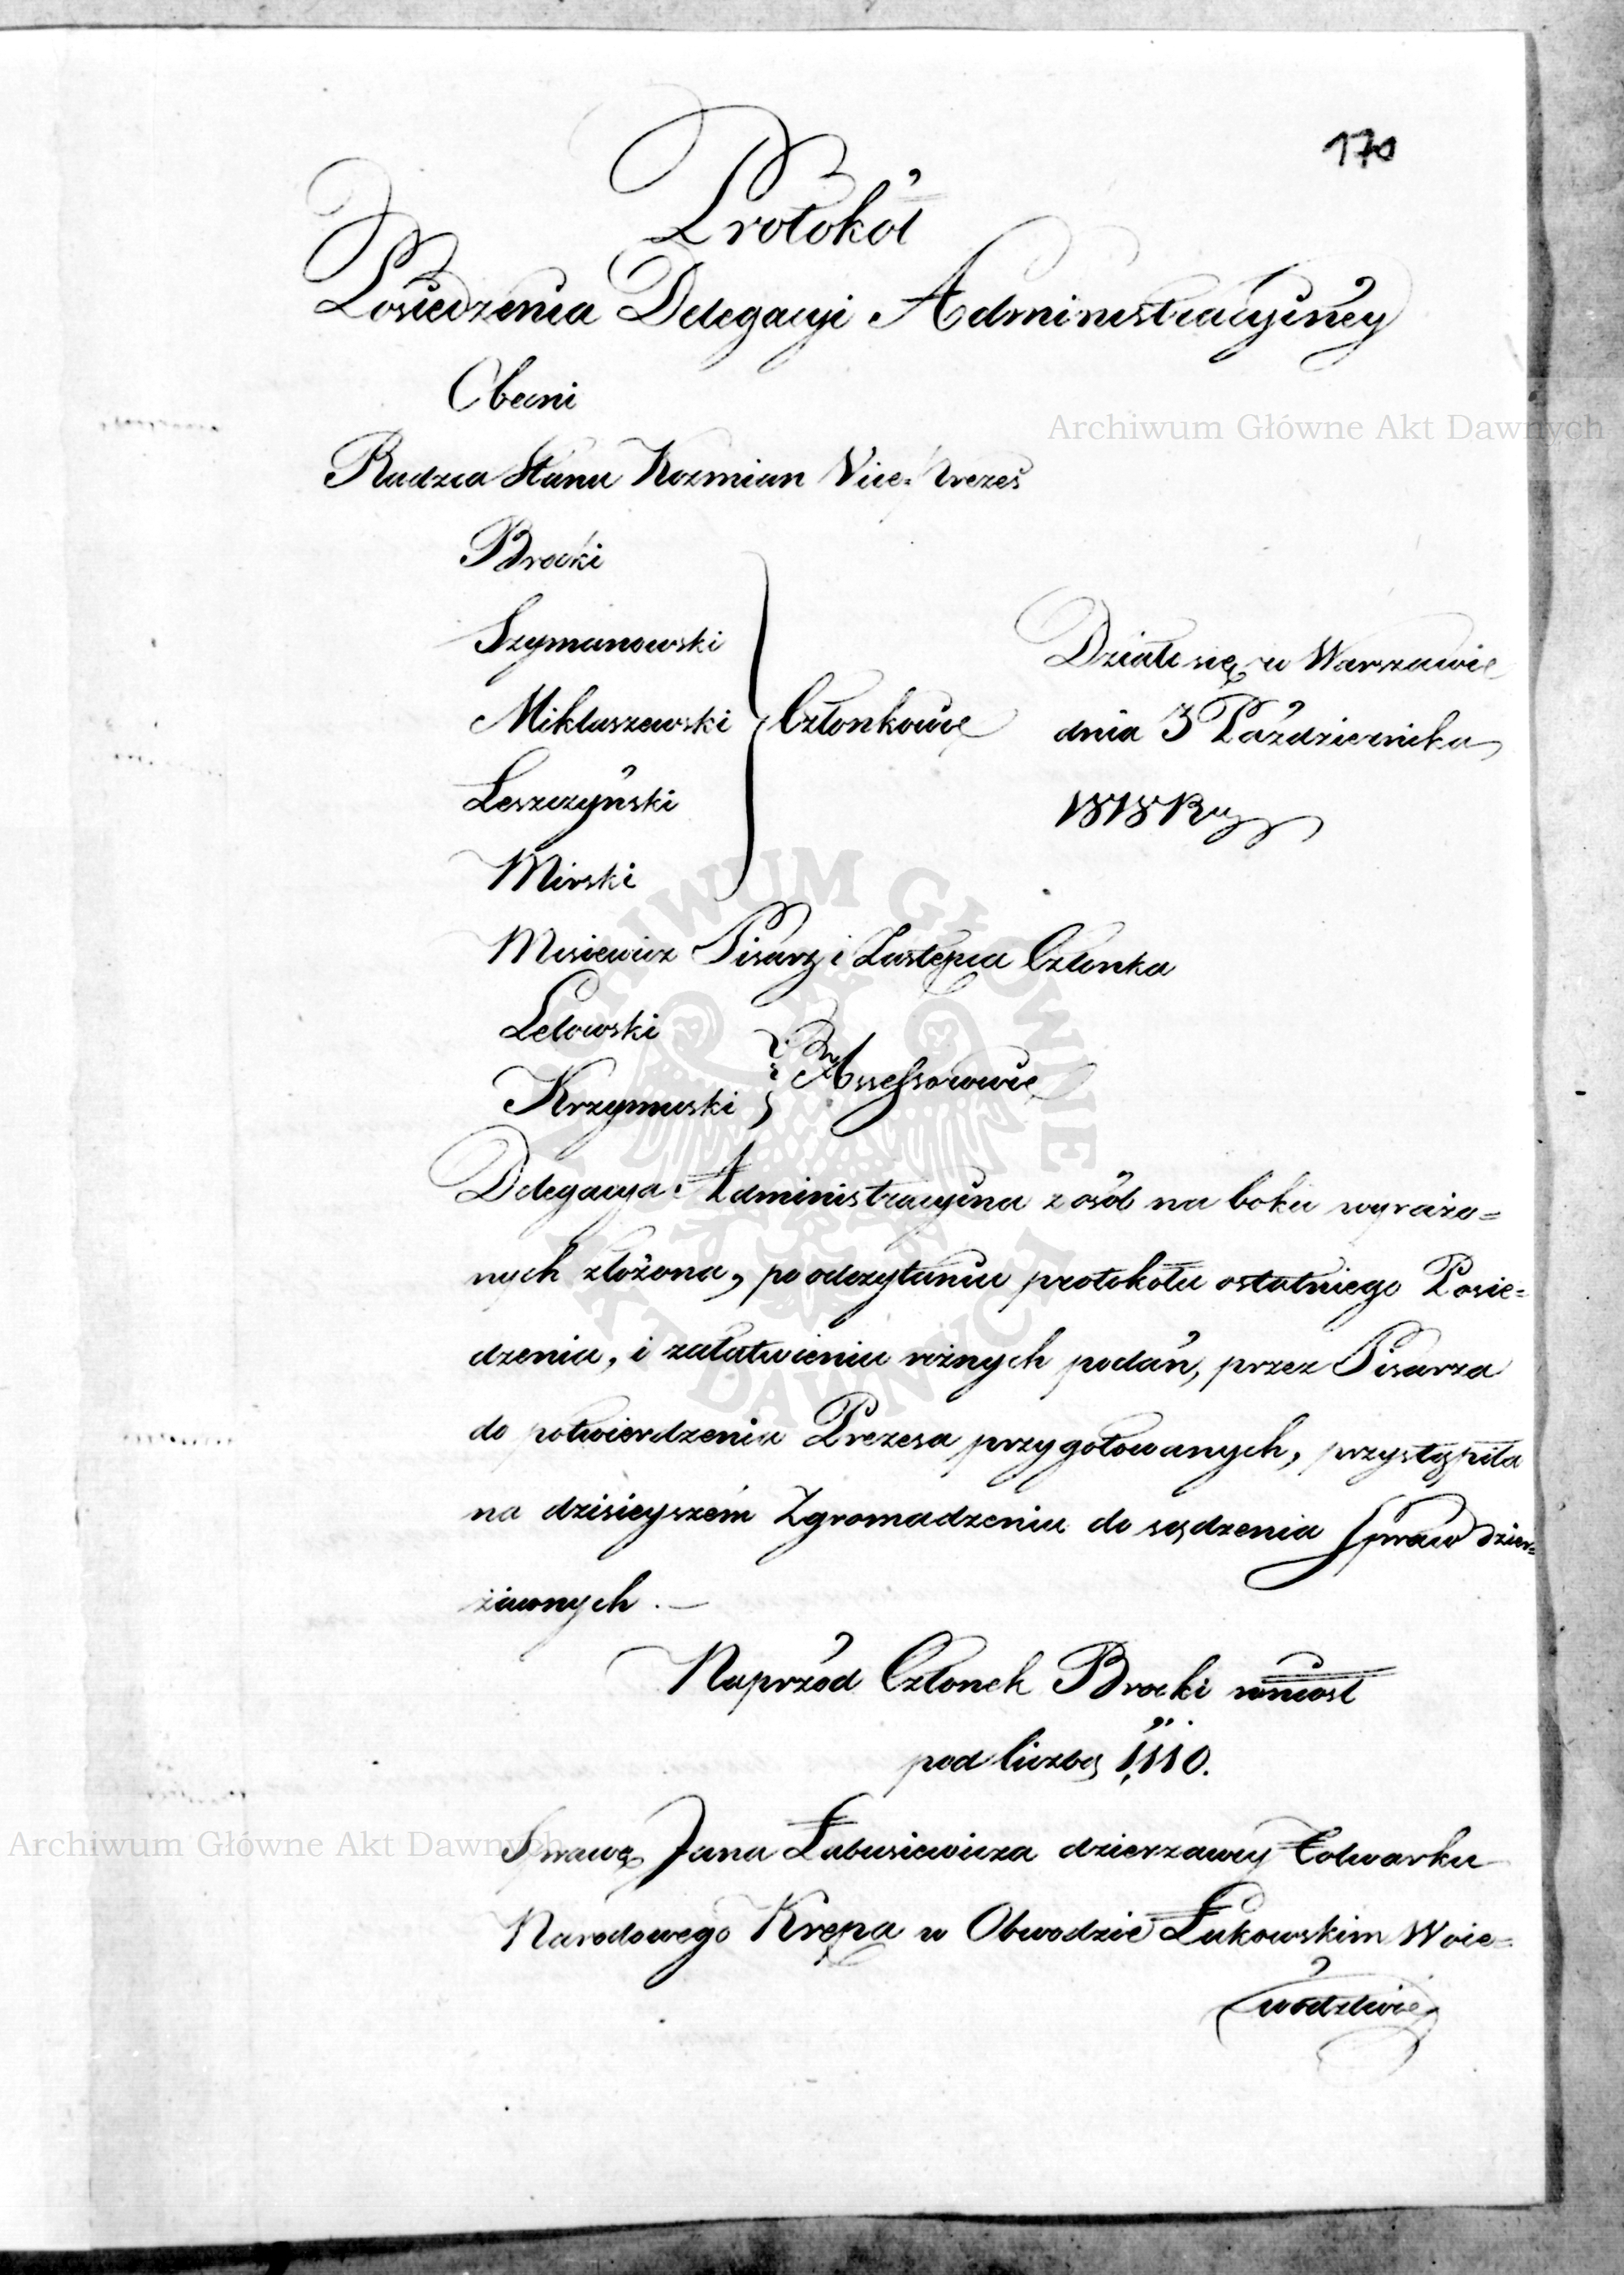 170
Protokół
Posiedzenia Delegacyi Administracyinéy
Obecni
Radzca Stanu Kozmian Vice-Prezes
Brocki
Szymanowski
Miklaszewski
Leszczyński
Mirski
Członkowie
Działo się w Warszawie
dnia 3 Października
1818 Ru
Misiewicz Pisarz i Zastępca Członka
Lelowski
Krzymuski
Assessorowie
Delegacya Administracyina z osób na boku wyrażo=
nych złożona, po odczytaniu protokołu ostatniego Posie=
dzenia, i załatwieniu rożnych podań, przez Pisarza
do potwierdzenia Prezesa przygotowanych, przystąpiła
na dzisieyszém Zgromadzeniu do sądzenia Spraw dzier=
żawnych.—
Naprzód Członek Brocki wniosł
pod liczbą 1,110.
Sprawę Jana Łabusiewicza dzierzawcy Folwarku
Narodowego Krępa w Obwodzie Łukowskim Woie=
wództwie
Archiwum Główne Akt Dawnych
Archiwum Główne Akt Dawnych
ARCHIWUM GŁÓWNE AKT DAWNYCH